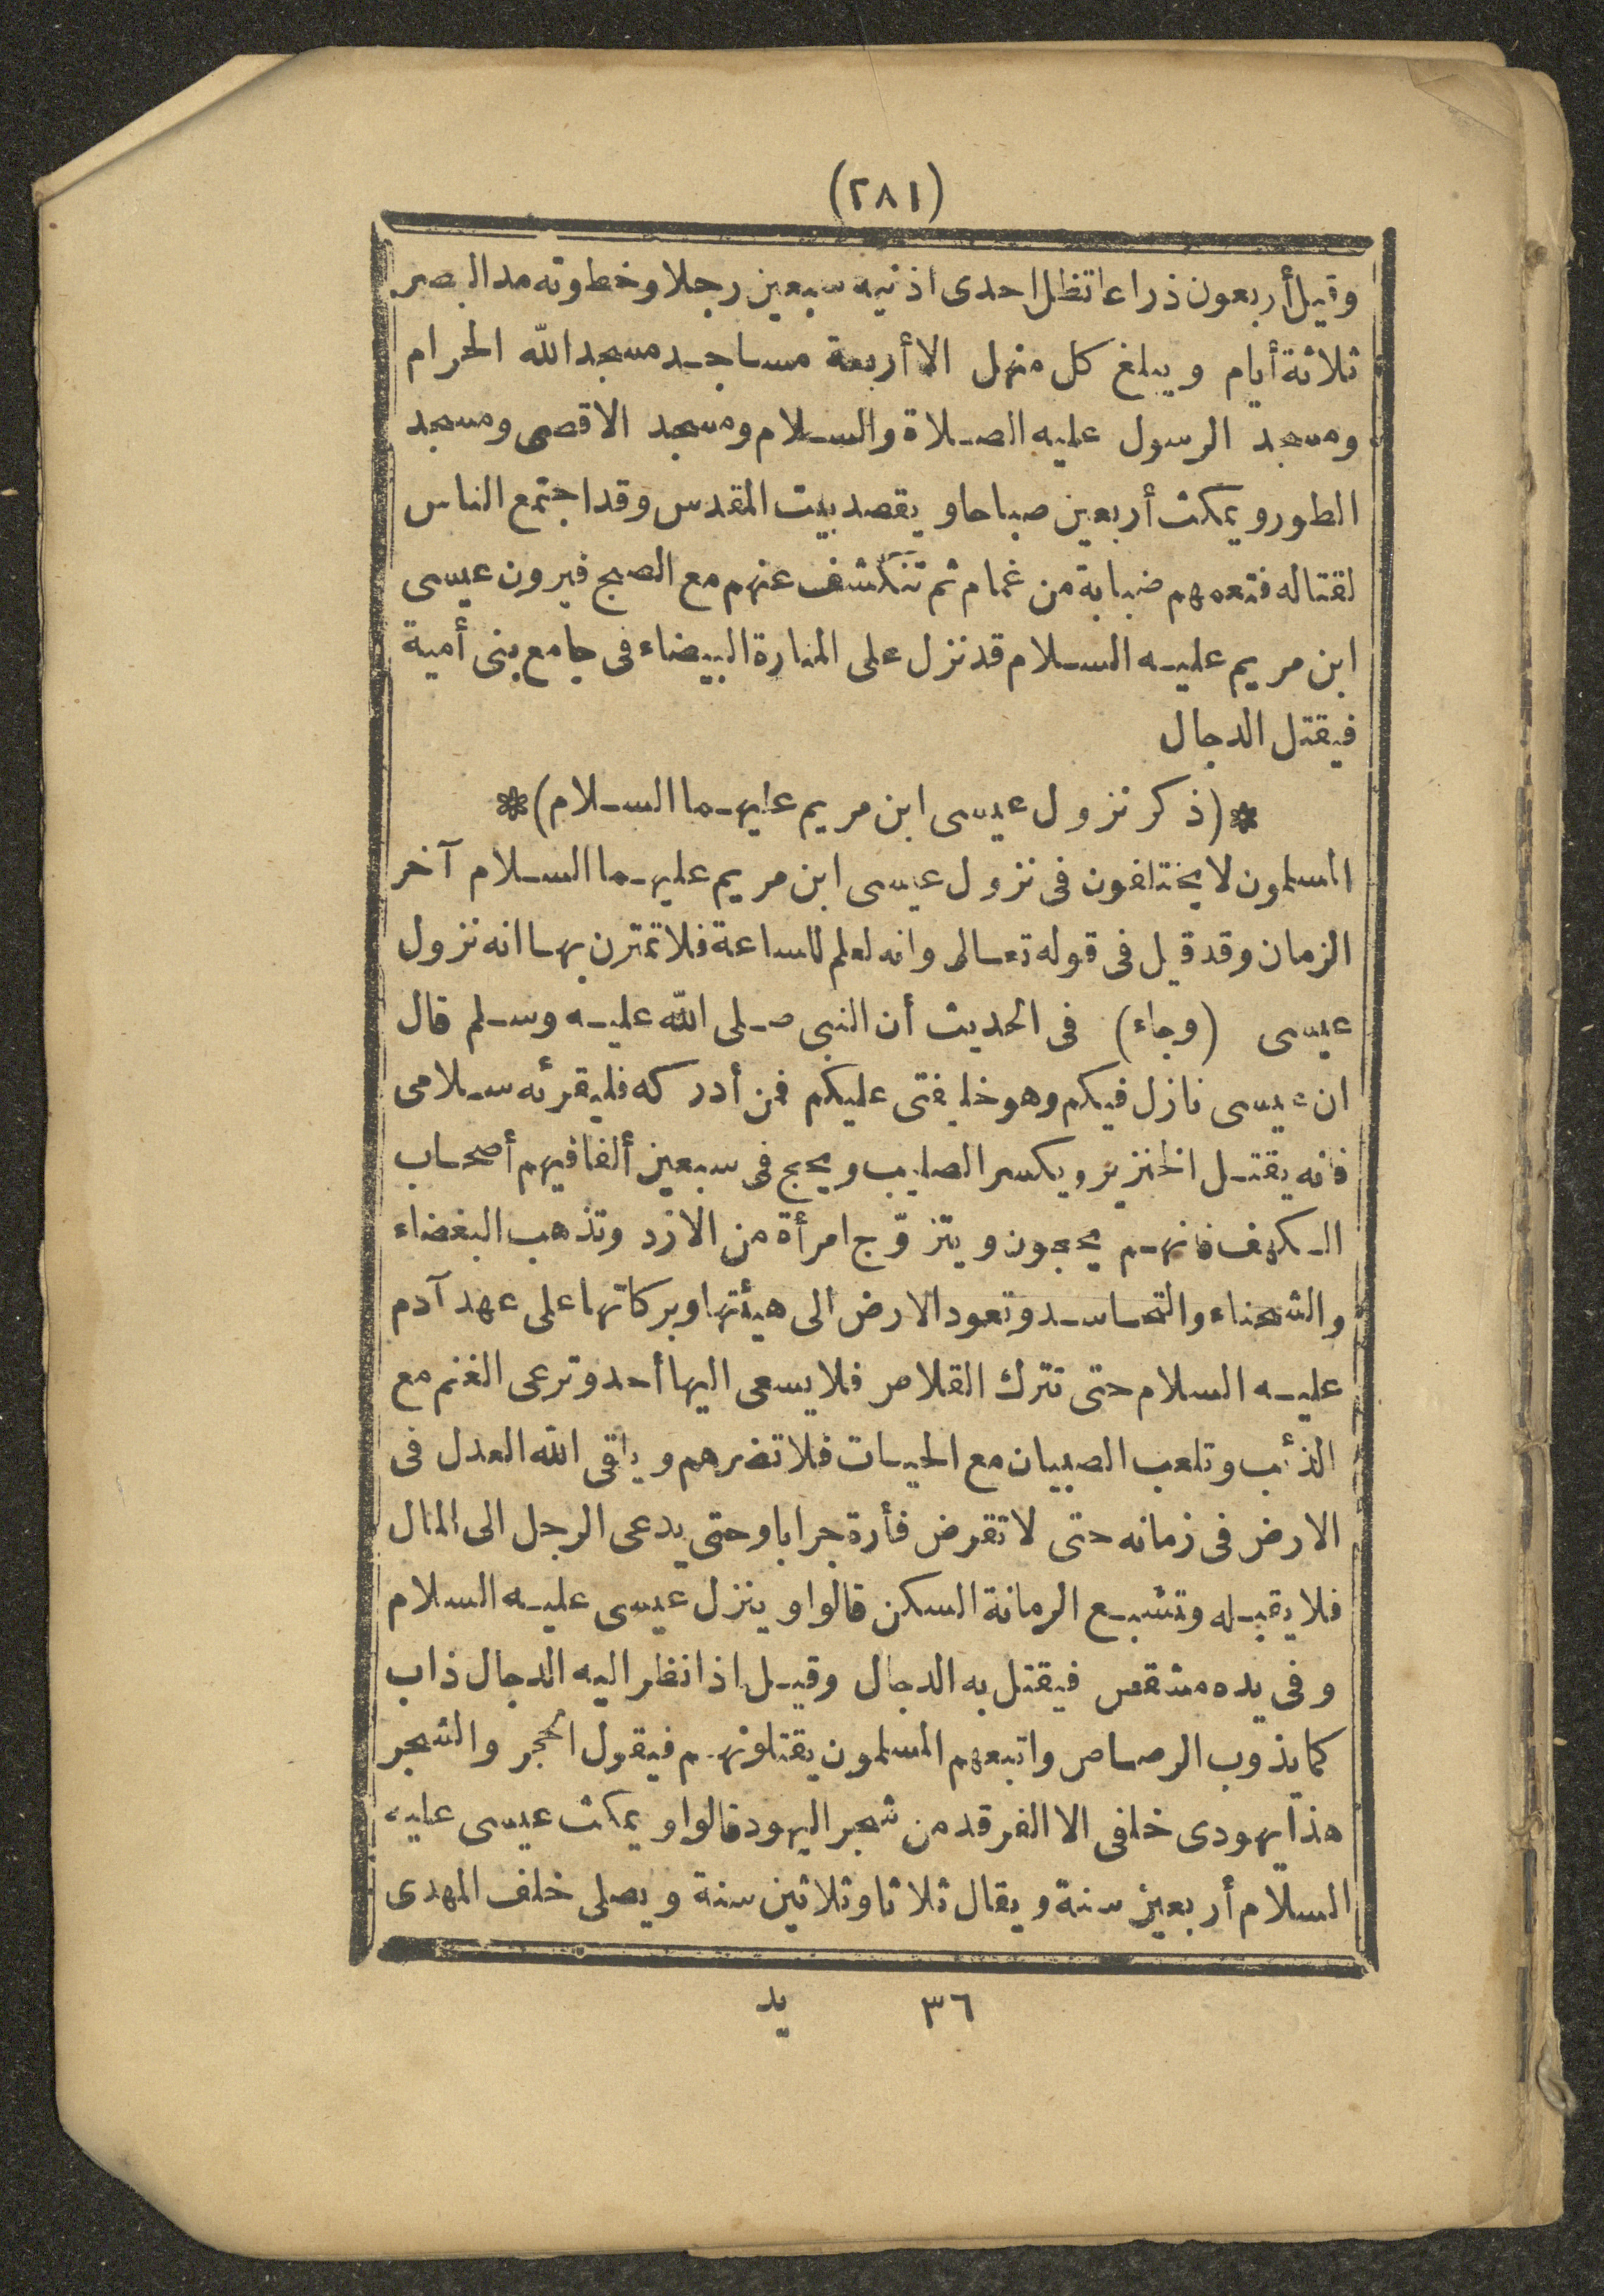 (٢٨١)
وقيل أربعون ذراعا تظل احدى اذنيه سبعين رجلا وخطوته مد البصر
ثلاثة أيام ويبلغ كل منهل الا أربعة مساجد مسجد الله الحرام
ومسجد الرسول عليه الصلاة والسلام ومسجد الاقصى ومسجد
الطور ويمكث أربعين صباحا ويقصد بيت المقدس وقد اجتمع الناس
لقتاله فتعمهم ضبابة من غمام ثم تنكشف عنهم مع الصبح فيرون عيسى
ابن مريم عليه السلام قد نزل على المنارة البيضاء فى جامع بنى أمية
فيقتل الدجال
* (ذكر نزول عيسى ابن مريم عليهما السلام) *
المسلمون لا يختلفون فى نزول عيسى ابن مريم عليهما السلام آخر
الزمان وقد قيل فى قوله تعالى وانه لعلم للساعة فلا تمترن بها انه نزول
عيسى (وجاء) فى الحديث أن النبى صلى الله عليه وسلم قال
ان عيسى نازل فيكم وهو خليفتى عليكم فمن أدركه فليقرئه سلامى
فانه يقتل الخنزير ويكسر الصليب ويحج فى سبعين ألفا فيهم أصحاب
الكهف فانهم يحجون ويتزوّج امرأة من الازد وتذهب البغضاء
والشحناء والتحاسد وتعود الارض الى هيئتها وبركاتها على عهد آدم
عليه السلام حتى تترك القلاص فلا يسعى اليها أحد وترعى الغنم مع
الذئب وتلعب الصبيان مع الحيات فلا تضرهم ويلقى الله العدل فى
الارض فى زمانه حتى لا تقرض فأرة جرابا وحتى يدعى الرجل الى المال
فلا يقبله وتشبع الرمانة السكن قالوا وينزل عيسى عليه السلام
وفى يده مشقص فيقتل به الدجال وقيل اذا نظر اليه الدجال ذاب
كما يذوب الرصاص واتبعهم المسلمون يقتلونهم فيقول الحجر والشجر
هذا يهودى خلفى الا الغرقد من شجر اليهود قالوا ويمكث عيسى عليه
السلام أربعين سنة ويقال ثلاثا وثلاثين سنة ويصلى خلف المهدى
٣٦ يد